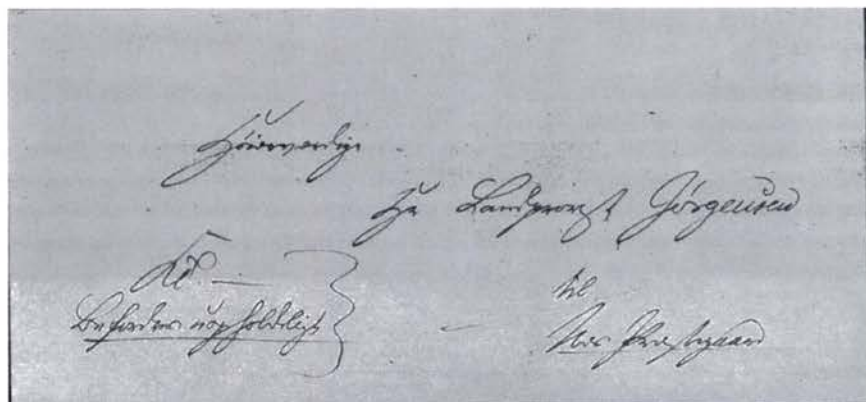 Höiærværdige
Hr Landprovst Jörgensen
til
Præstegaard
Befordres uopholdeligt